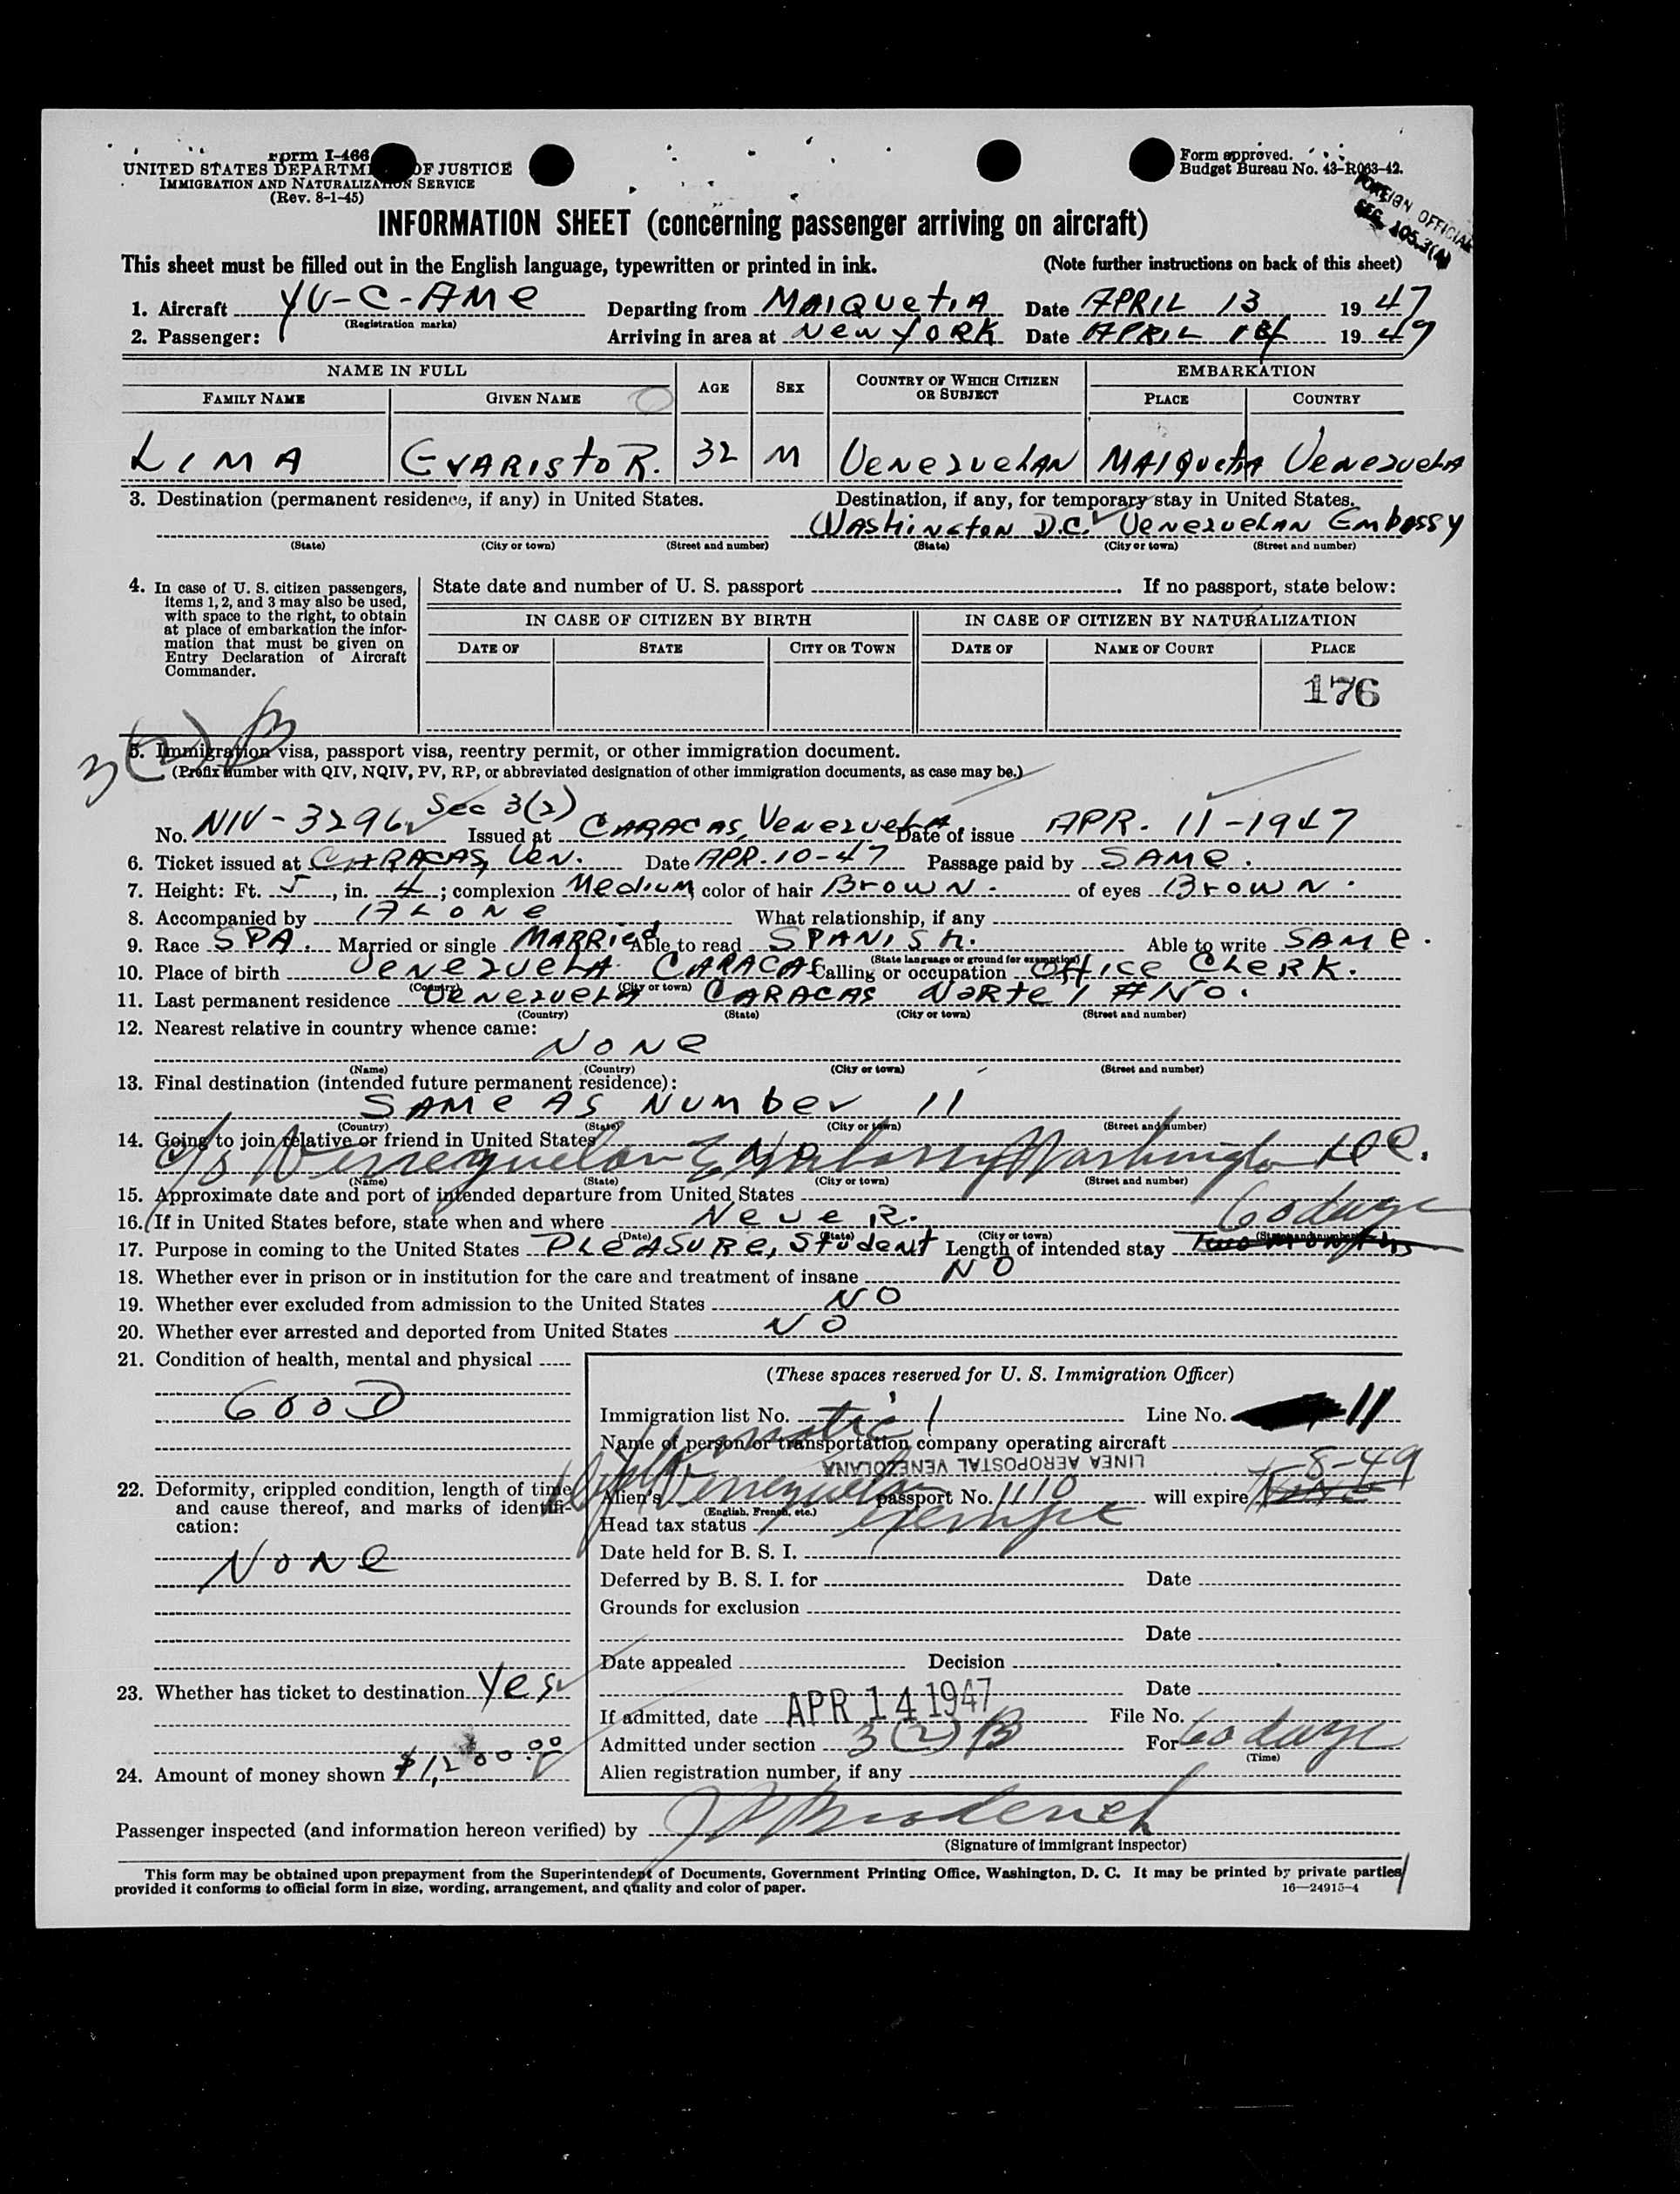 Form I-466
UNITED STATES DEPARTMENT OF JUSTICE
IMMIGRATION AND NATURALIZATION SERVICE
(Rev. 8-1-45)
Form approved.
Budget Bureau No. 43-R063-42.
FOREIGN OFFICIAL
SEC. 105.3(4)
INFORMATION SHEET (concerning passenger arriving on aircraft)
This sheet must be filled out in the English language, typewritten or printed in ink. (Note further instructions on back of this sheet)
1. Aircraft YV-C-AMe Departing from MAIQUetiA Date APRIL 13 1947
(Registration marks)
2. Passenger: Arriving in area at New YORK Date APRIL 14 1947
NAME IN FULL AGE SEX COUNTRY OF WHICH CITIZEN OR SUBJECT EMBARKATION
FAMILY NAME GIVEN NAME PLACE COUNTRY
LIMA EVARISTO R. 32 M VENEZUELAN MAIQuetiA VENEZUELA
3. Destination (permanent residence, if any) in United States. Destination, if any, for temporary stay in United States.
WASHINGTON D.C. VENEZUELAN EMbASSY
(State) (City or town) (Street and number) (State) (City or town) (Street and number)
4. In case of U. S. citizen passengers, items 1, 2, and 3 may also be used, with space to the right, to obtain at place of embarkation the information that must be given on Entry Declaration of Aircraft Commander.
State date and number of U. S. passport If no passport, state below:
IN CASE OF CITIZEN BY BIRTH IN CASE OF CITIZEN BY NATURALIZATION
DATE OF STATE CITY OR TOWN DATE OF NAME OF COURT PLACE
176
3(2)B
5. Immigration visa, passport visa, reentry permit, or other immigration document.
(Prefix number with QIV, NQIV, PV, RP, or abbreviated designation of other immigration documents, as case may be.)
No. NIV-3296 Sec 3(2) Issued at CARACAS, VENEZUELA Date of issue APR. 11-1947
6. Ticket issued at CARACAS, VEN. Date APR.10-47 Passage paid by SAMe.
7. Height: Ft. 5, in. 4; complexion Medium color of hair BrowN. of eyes BrowN.
8. Accompanied by ALONe What relationship, if any
9. Race SPA. Married or single MARRied Able to read SPANISH. Able to write SAMe.
(State language or ground for exemption)
10. Place of birth VENEZUELA CARACAS Calling or occupation OFFice CLERK.
(Country) (City or town)
11. Last permanent residence VENEZUELA CARACAS NORTE 1 #No.
(Country) (State) (City or town) (Street and number)
12. Nearest relative in country whence came:
NONe
(Name) (Country) (City or town) (Street and number)
13. Final destination (intended future permanent residence):
SAMe AS NUMber 11
(Country) (State) (City or town) (Street and number)
14. Going to join relative or friend in United States
NO
c/o Venezuelan Embassy Washington DC.
(Name) (State) (City or town) (Street and number)
15. Approximate date and port of intended departure from United States
16. If in United States before, state when and where NeveR. 60 days
(Date) (State) (City or town) (Street and number)
17. Purpose in coming to the United States PLeASURe, Student Length of intended stay Two months
18. Whether ever in prison or in institution for the care and treatment of insane NO
19. Whether ever excluded from admission to the United States NO
20. Whether ever arrested and deported from United States NO
21. Condition of health, mental and physical
GOOD
22. Deformity, crippled condition, length of time and cause thereof, and marks of identification:
NONe
23. Whether has ticket to destination Yes
24. Amount of money shown $1,200.00
(These spaces reserved for U. S. Immigration Officer)
Immigration list No. 1 Line No. 11
Name of person or transportation company operating aircraft
LINEA AEROPOSTAL VENEZOLANA
Alien's Venezuelan passport No. 1110 will expire 8-49
(English, French, etc.)
Head tax status exempt
Date held for B. S. I.
Deferred by B. S. I. for Date
Grounds for exclusion
Date
Date appealed Decision
Date
If admitted, date APR 14 1947 File No.
Admitted under section 3(2)B For 60 days
(Time)
Alien registration number, if any
Passenger inspected (and information hereon verified) by
(Signature of immigrant inspector)
This form may be obtained upon prepayment from the Superintendent of Documents, Government Printing Office, Washington, D. C. It may be printed by private parties
provided it conforms to official form in size, wording, arrangement, and quality and color of paper. 16—24915-4